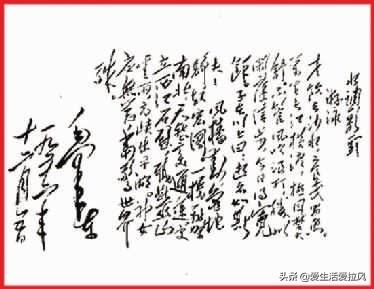 水调歌头
游泳
才饮长沙水又食武昌鱼
万里长江横渡极目楚天
舒不管风吹浪打胜似
闲庭信步今日得宽
余子在川上曰逝者如斯
夫！风樯动龟蛇
静起宏图一桥飞架
南北天堑变通途更
立西江石壁截断巫山
云雨高峡出平湖神女
应无恙当惊世界
殊
毛泽东
一九五六年
十二月五日
头条 @爱生活爱拉风